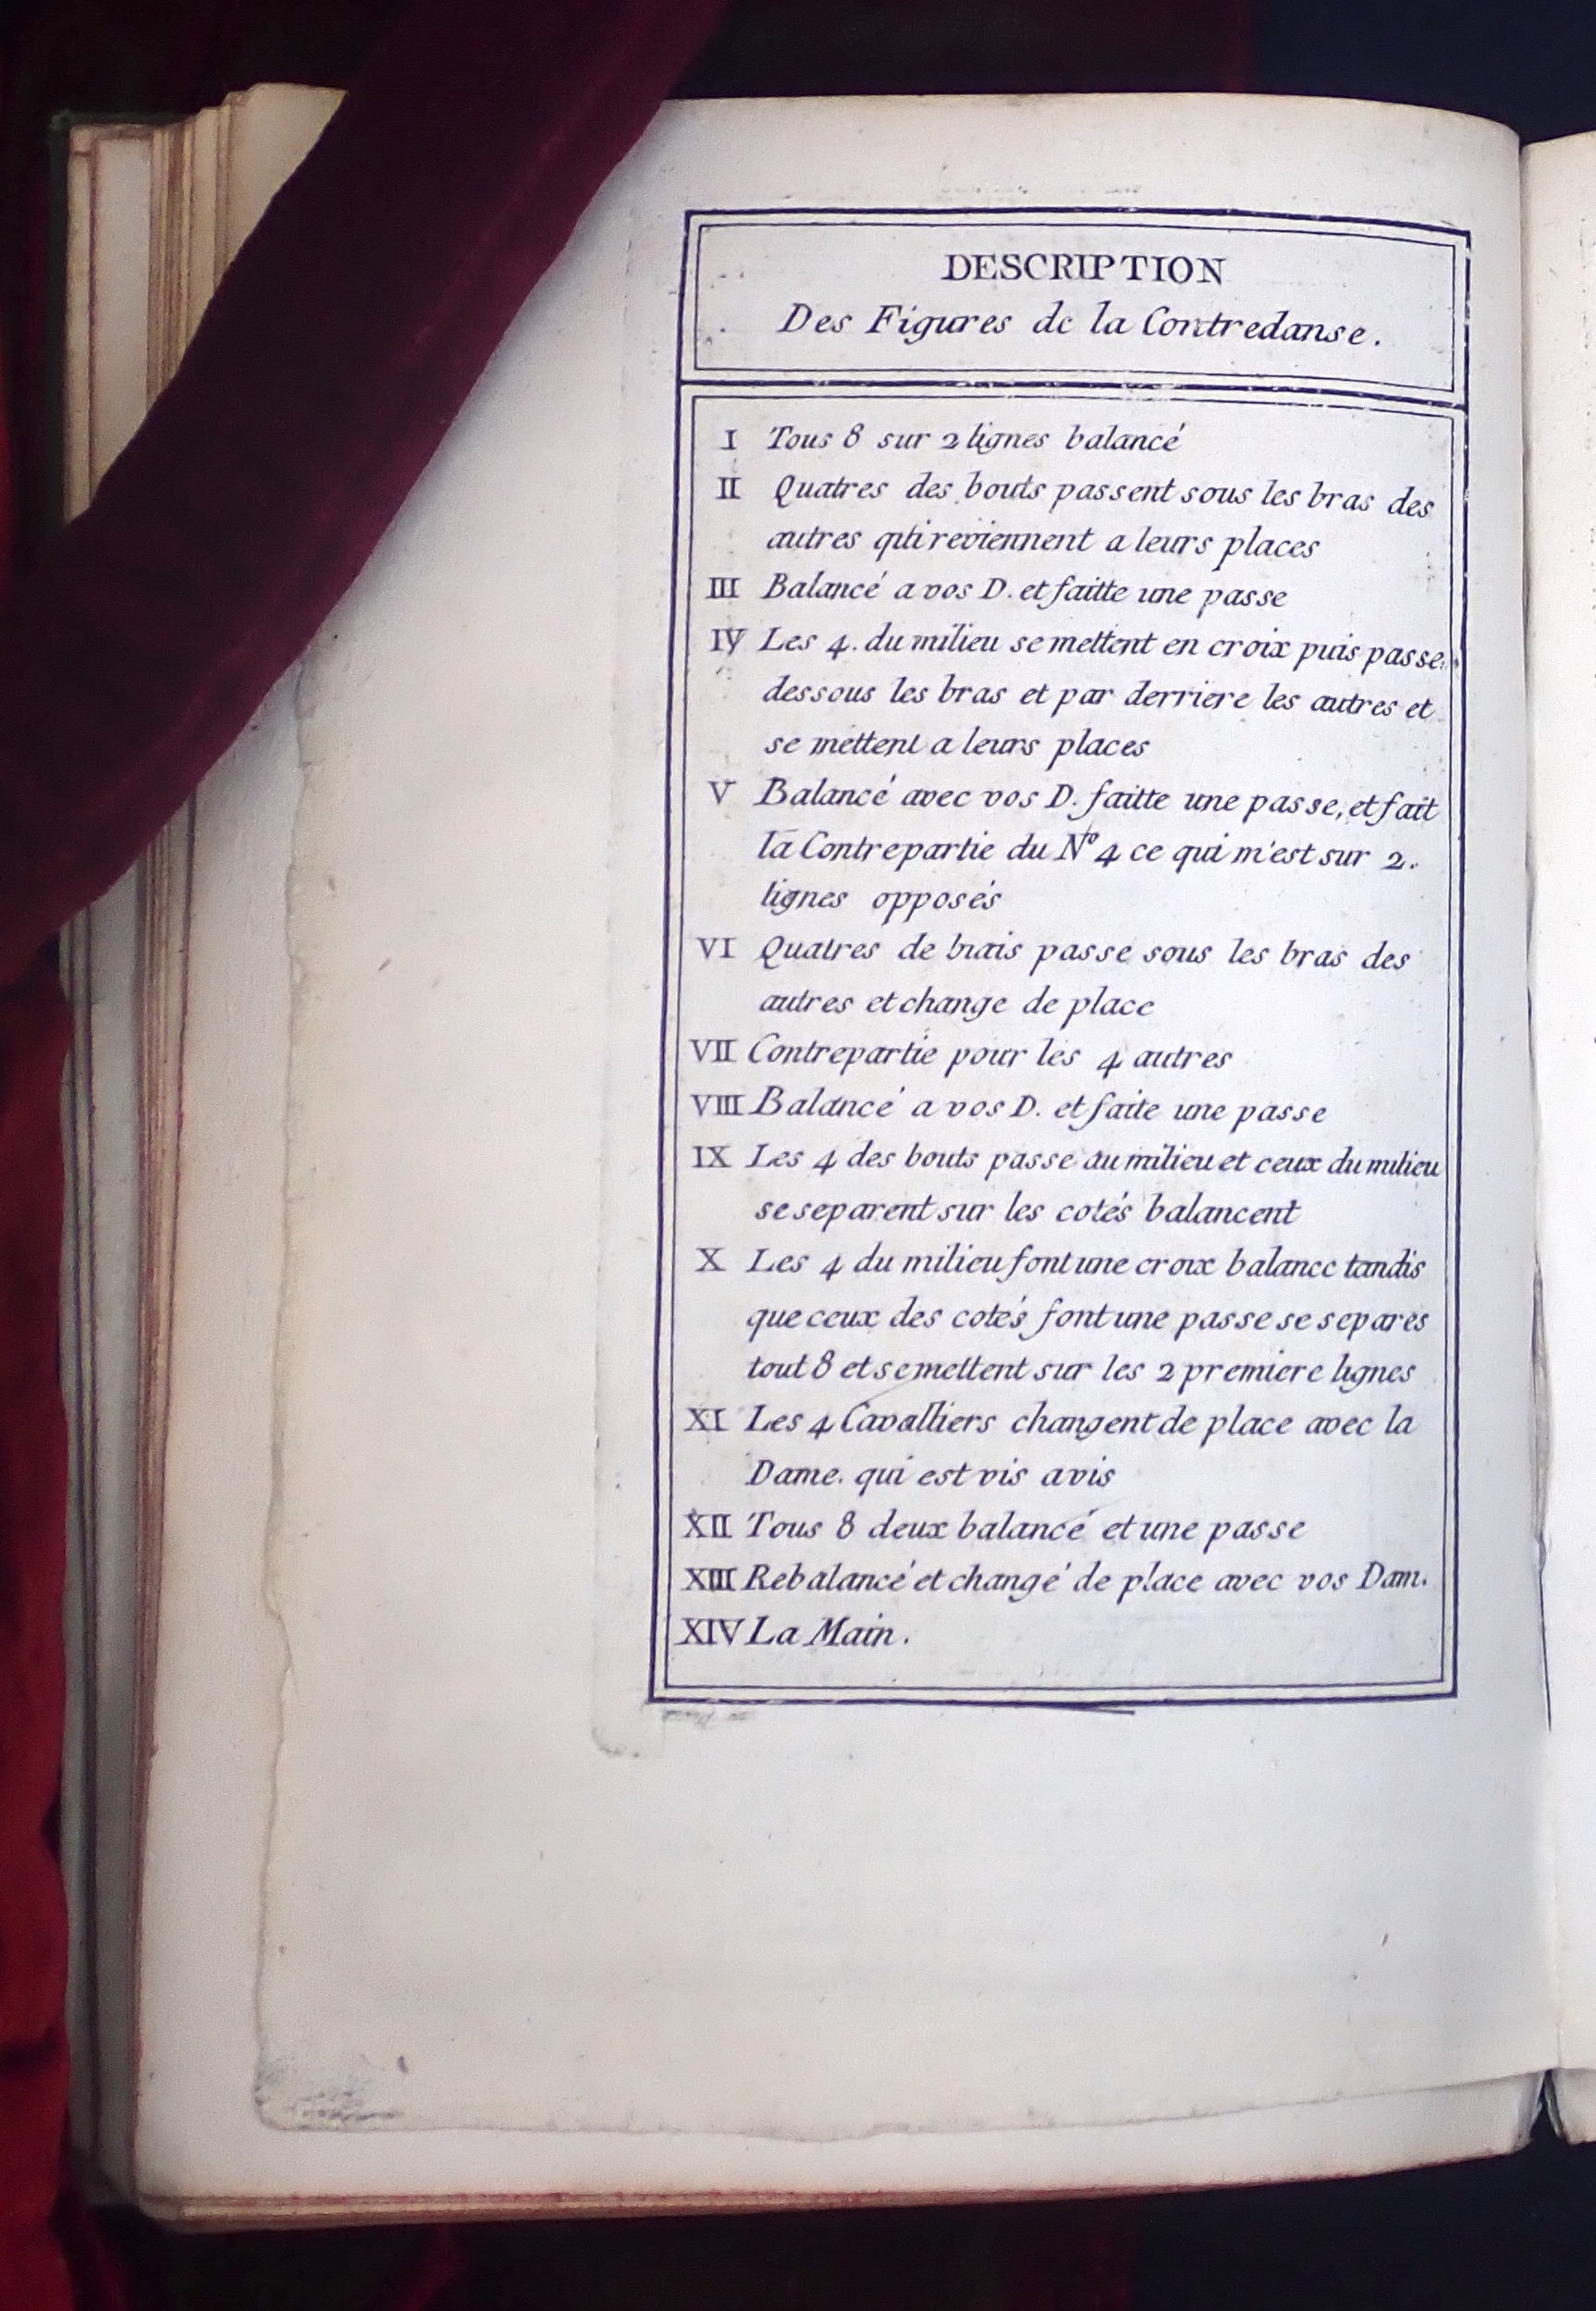 DESCRIPTION
Des Figures de la Contredanse.
I Tous 8 sur 2 lignes balancé
II Quatres des bouts passent sous les bras des
autres qui reviennent a leurs places
III Balancé a vos D. et faitte une passe
IV Les 4. du milieu se mettent en croix puis passe
dessous les bras et par derriere les autres et
se mettent a leurs places
V Balancé avec vos D. faitte une passe, et fait
la Contrepartie du N° 4 ce qui m'est sur 2.
lignes opposés
VI Quatres de biais passe sous les bras des
autres et change de place
VII Contrepartie pour les 4 autres
VIII Balancé a vos D. et faite une passe
IX Les 4 des bouts passe au milieu et ceux du milieu
se separent sur les cotés balancent
X Les 4 du milieu font une croix balance tandis
que ceux des cotés font une passe se separes
tout 8 et se mettent sur les 2 premiere lignes
XI Les 4 Cavalliers changent de place avec la
Dame. qui est vis avis
XII Tous 8 deux balancé et une passe
XIII Rebalancé et changé de place avec vos Dam.
XIV La Main.